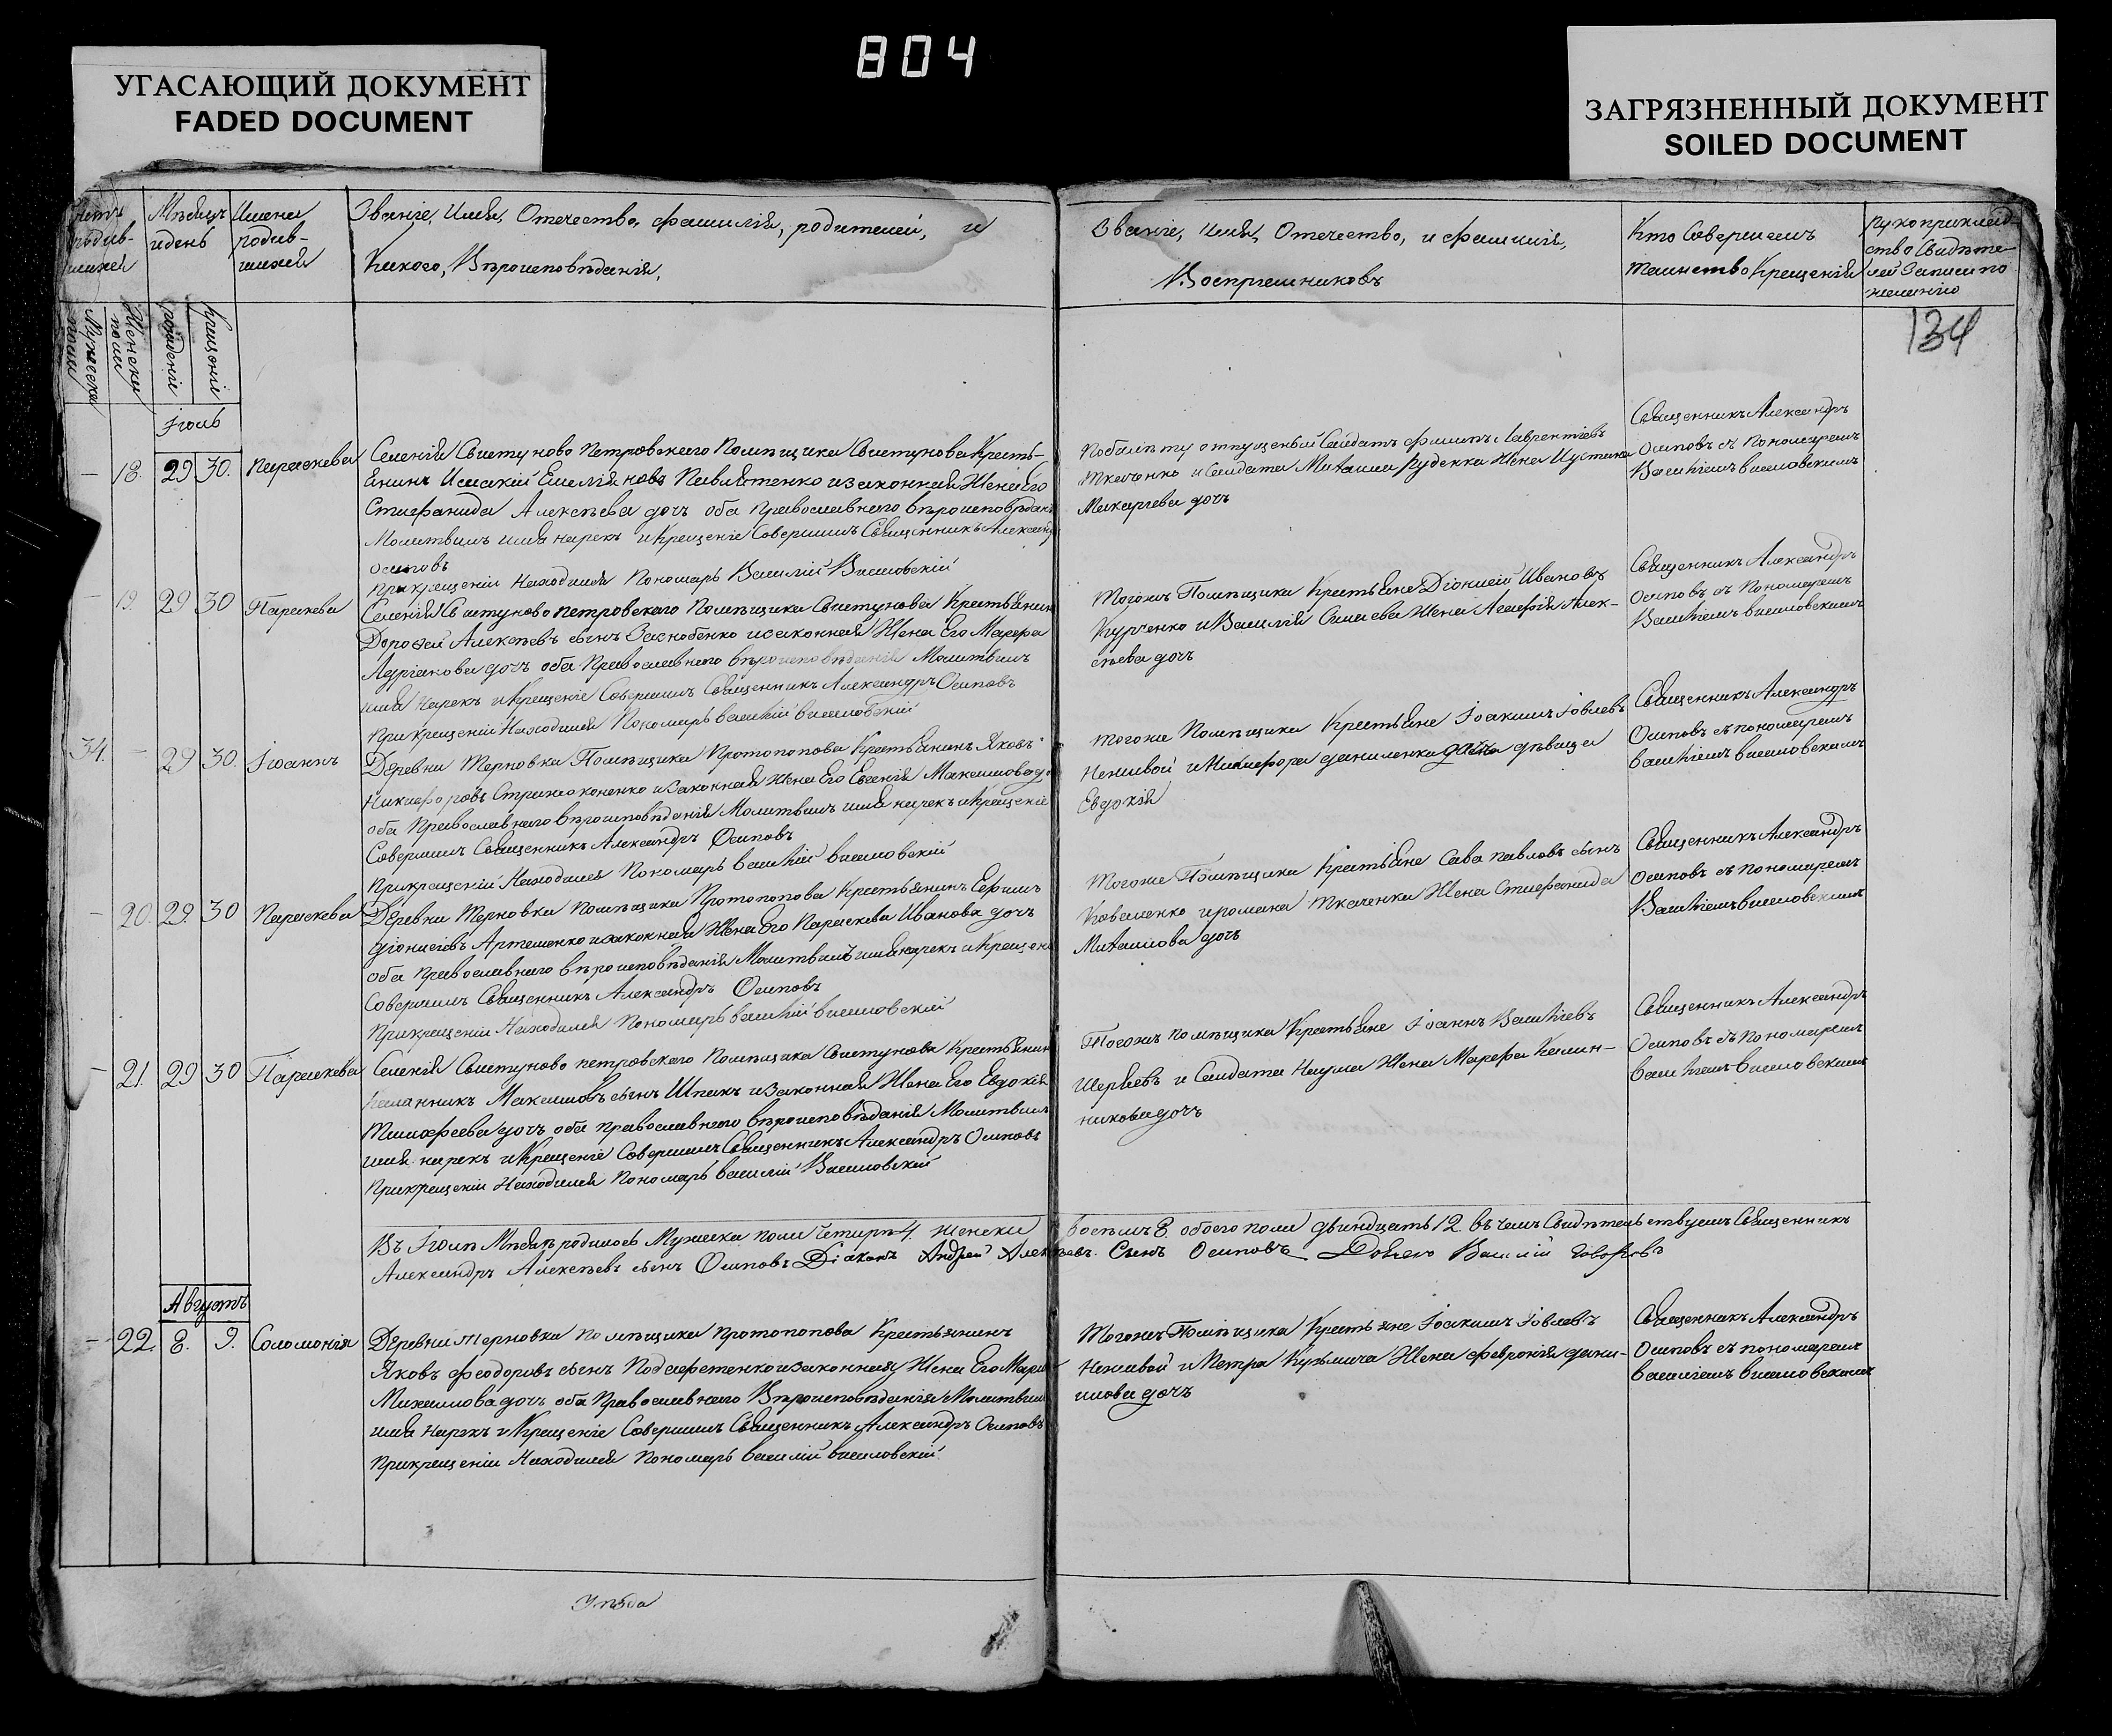 804
УГАСАЮЩИЙ ДОКУМЕНТ
FADED DOCUMENT
ЗАГРЯЗНЕННЫЙ ДОКУМЕНТ
SOILED DOCUMENT
Мѣсяцъ
и день
Имена
родив-
шихся
Званіе, Имя, Отечество, фамилія, родителей, и
Какого, Вѣроисповѣданія,
Званіе, имя, Отечество, и фамилія,
Воспріемниковъ
Кто Совершалъ
таинство Крещенія
рукоприклад-
ство Свидѣте-
лей Записи по
желанію
Мужеска
пола
Женска
пола
рожденія
крещенія
134
Іюль
18. 29 30. Параскева
Селенія Свистуново Петровскаго Помѣщика Свистунова Кресть-
янинъ Исакій Емеліяновъ и законная Жена Его
Стиефанида Алексѣева дочь оба Православнаго вѣроисповѣдан
Молитвилъ имя нарекъ и Крещеніе Совершилъ Священникъ Александ
Осиповъ
при крещеніи Находился Пономарь Василій Висловскій
По билѣту отпущеный Салдатъ Филипъ Лаврентіевъ
Ткаченко и Салдата Михаила Руденка Жена Иустина
Макаріева дочь
Священникъ Александръ
Осиповъ съ Пономаремъ
Василіемъ висловскимъ
19. 29 30 Параскева
Селенія Свистуново петровскаго Помѣщика Свистунова Крестьянинъ
Дорофей Алексѣевъ сынъ Заснобенко и законная Жена Его Марфа
Адріанова дочь оба Православнаго вѣроисповѣданія Молитвилъ
имя нарекъ и Крещеніе Совершилъ Священникъ Александръ Осиповъ
при крещеніи Находился Пономарь василій висловскій
Тогожъ Помѣщика Крестьяне Діонисій Ивановъ
Курченко и Василія Жена Агафія Алек-
сѣева дочь
Священникъ Александръ
Осиповъ съ Пономаремъ
Василіемъ висловскимъ
34. 29 30. Іоаннъ
Деревни Терновка Помѣщика Протопопова Крестьянинъ Яковъ
Никифоровъ Стрижаконенко и Законная Жена Его Евгенія Максимова до
оба Православнаго вѣроисповѣданія Молитвилъ имя нарекъ и Крещеніе
Совершилъ Священникъ Александръ Осиповъ
при крещеніи Находился Пономарь василій висловскій
Тогоже Помѣщика Крестьяне Іоакимъ Іовлевъ
Неживой и Никифора даниленка дочь дѣвица
Евдокія
Священникъ Александръ
Осиповъ съ пономаремъ
василіемъ висловскимъ
20. 29. 30 Параскева
Деревни Терновка помѣщика Протопопова Крестьянинъ Ефимъ
Діонисіевъ Артеменко и законная Жена Его Параскева Иванова дочь
оба православнаго вѣроисповѣданія Молитвилъ имя нарекъ и Крещені
Совершилъ Священникъ Александръ Осиповъ
При крещеніи Находился Пономарь василій висловскій
Тогоже Помѣщика Крестьяне Сава павловъ сынъ
Коваленко и романа Ткаченка Жена Стиефанида
Михаилова дочь
Священникъ Александръ
Осиповъ съ пономаремъ
Василіемъ висловскимъ
21. 29 30 Параскева
Селенія Свистуново петровскаго Помѣщика Свистунова Крестьянинъ
Максимовъ сынъ Шпакъ и Законная Жена Его Евдокія
Тимофеева дочь оба православнаго вѣроисповѣданія Молитвилъ
имя нарекъ и Крещеніе Совершилъ Священникъ Александръ Осиповъ
При крещеніи Находился Пономарь василій Висловскій
Тогожъ помѣщика Крестьяне Іоаннъ Василіевъ
и Салдата Наума Жена Марфа Калин-
никова дочь
Священникъ Александръ
Осиповъ съ Пономаремъ
василіемъ висловскимъ
Въ Іюлѣ Мѣсяцѣ родилось Мужеска пола четыри 4. женска восемъ 8. обоего пола двинадцать 12. въ чемъ Свидѣтельствуемъ Священникъ
Александръ Алексѣевъ сынъ Осиповъ Діаконъ Андрей Алексѣевъ Сынъ Осиповъ Василій
Августъ
22. 8. 9. Соломонія
Деревни терновка помѣщика протопопова Крестьянинъ
Яковъ феодоровъ сынъ и законная Жена Его Мари
Михаилова дочь оба Православнаго Вѣроисповѣданія Молитвилъ
имя нарекъ и Крещеніе Совершилъ Священникъ Александръ Осиповъ
при крещеніи Находился пономарь василій висловскій
Тогожъ Помѣщика Крестьяне Іоакимъ Іовлевъ
Неживой и Петра Кузьмича Жена февронія дани-
илова дочь
Священникъ Александръ
Осиповъ съ пономаремъ
василіемъ висловскимъ